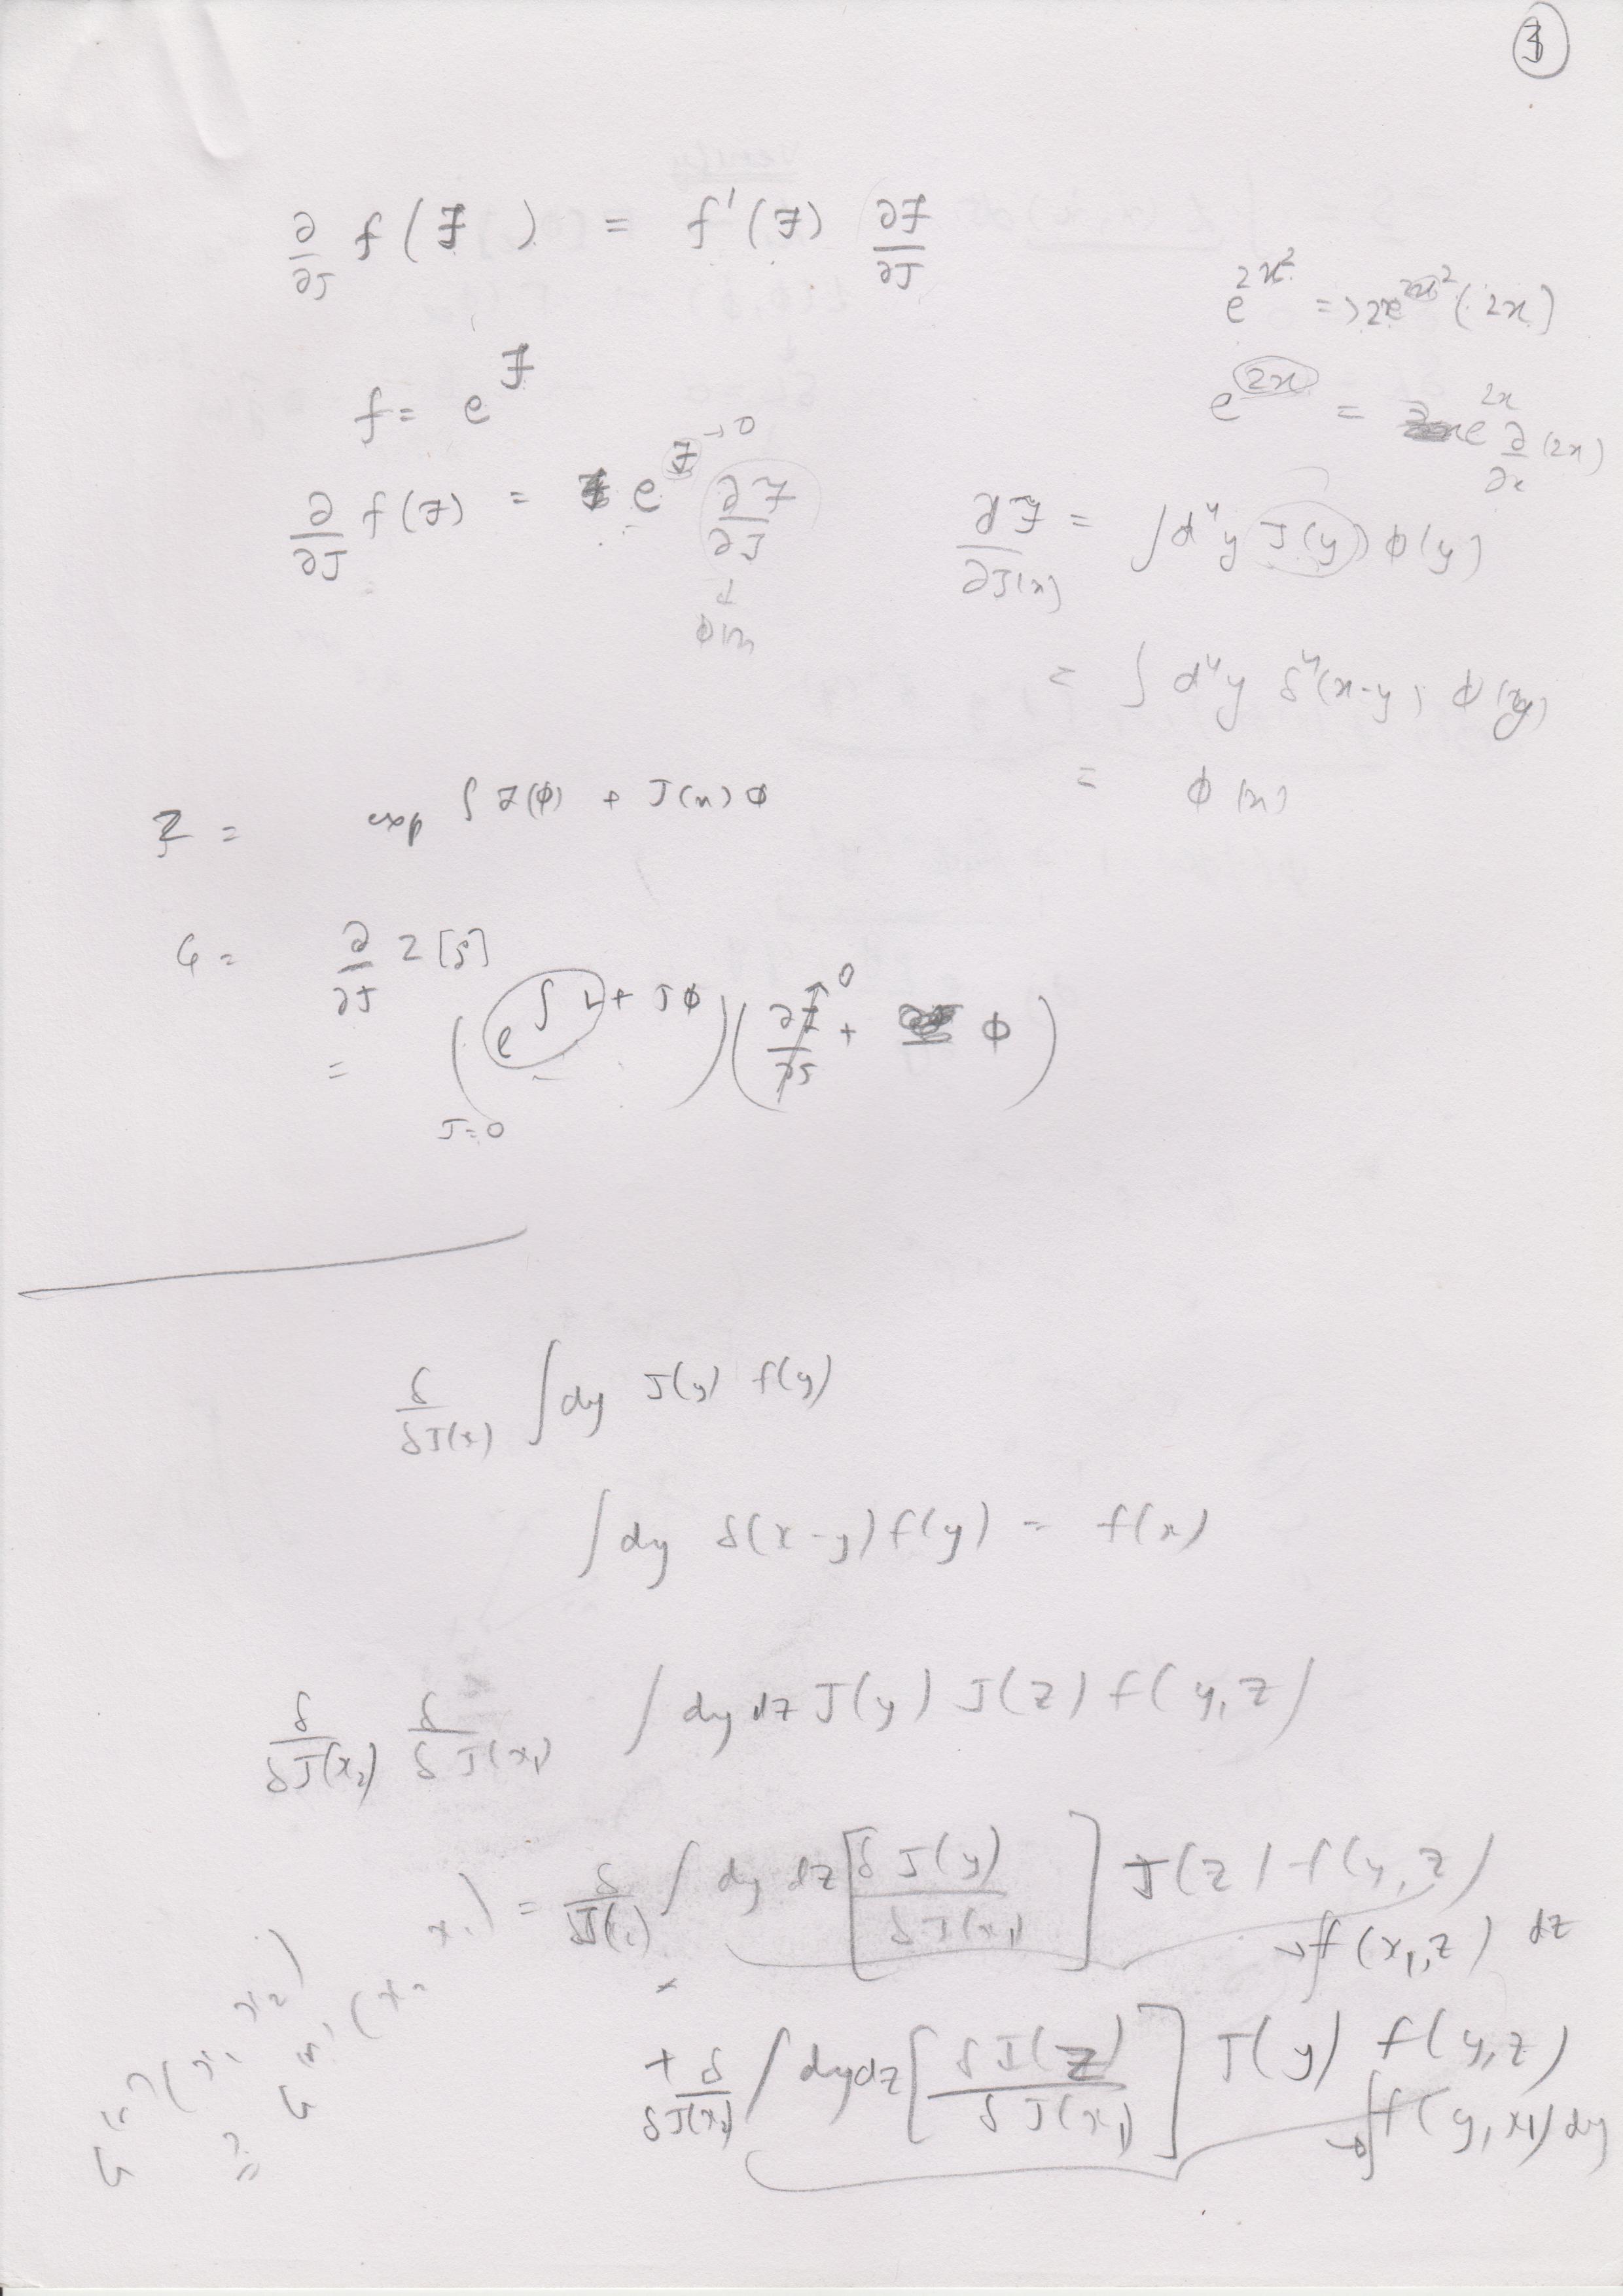 3
∂/∂J f(F) = f'(F) ∂F/∂J
e^{2x²} => 2e^{2x²}(2x)
f = e^F
e^{2x} = e^{2x} ∂/∂x (2x)
∂/∂J f(F) = e^{F→0} ∂F/∂J
↓
φ(x)
∂F/∂J(x) = ∫d⁴y J(y) φ(y)
= ∫ d⁴y δ⁴(x-y) φ(y)
= φ(x)
Z = exp ∫ L(φ) + J(x) φ
G = ∂/∂J Z[J]
= (e^{∫ L + Jφ})_{J=0} (∂L/∂J→0 + φ)
δ/δJ(x) ∫ dy J(y) f(y)
∫ dy δ(x-y) f(y) = f(x)
δ/δJ(x₂) δ/δJ(x₁) ∫ dy dz J(y) J(z) f(y,z)
= δ/δJ( ) ∫ dy dz [δJ(y)/δJ(x₁)] J(z) f(y,z)
→ ∫f(x₁,z) dz
+ δ/δJ(x₂) ∫ dy dz [δJ(z)/δJ(x₁)] J(y) f(y,z)
→ ∫f(y,x₁) dy
G⁽²⁾(x₁, x₂) ?= G⁽²⁾(x₂, x₁)